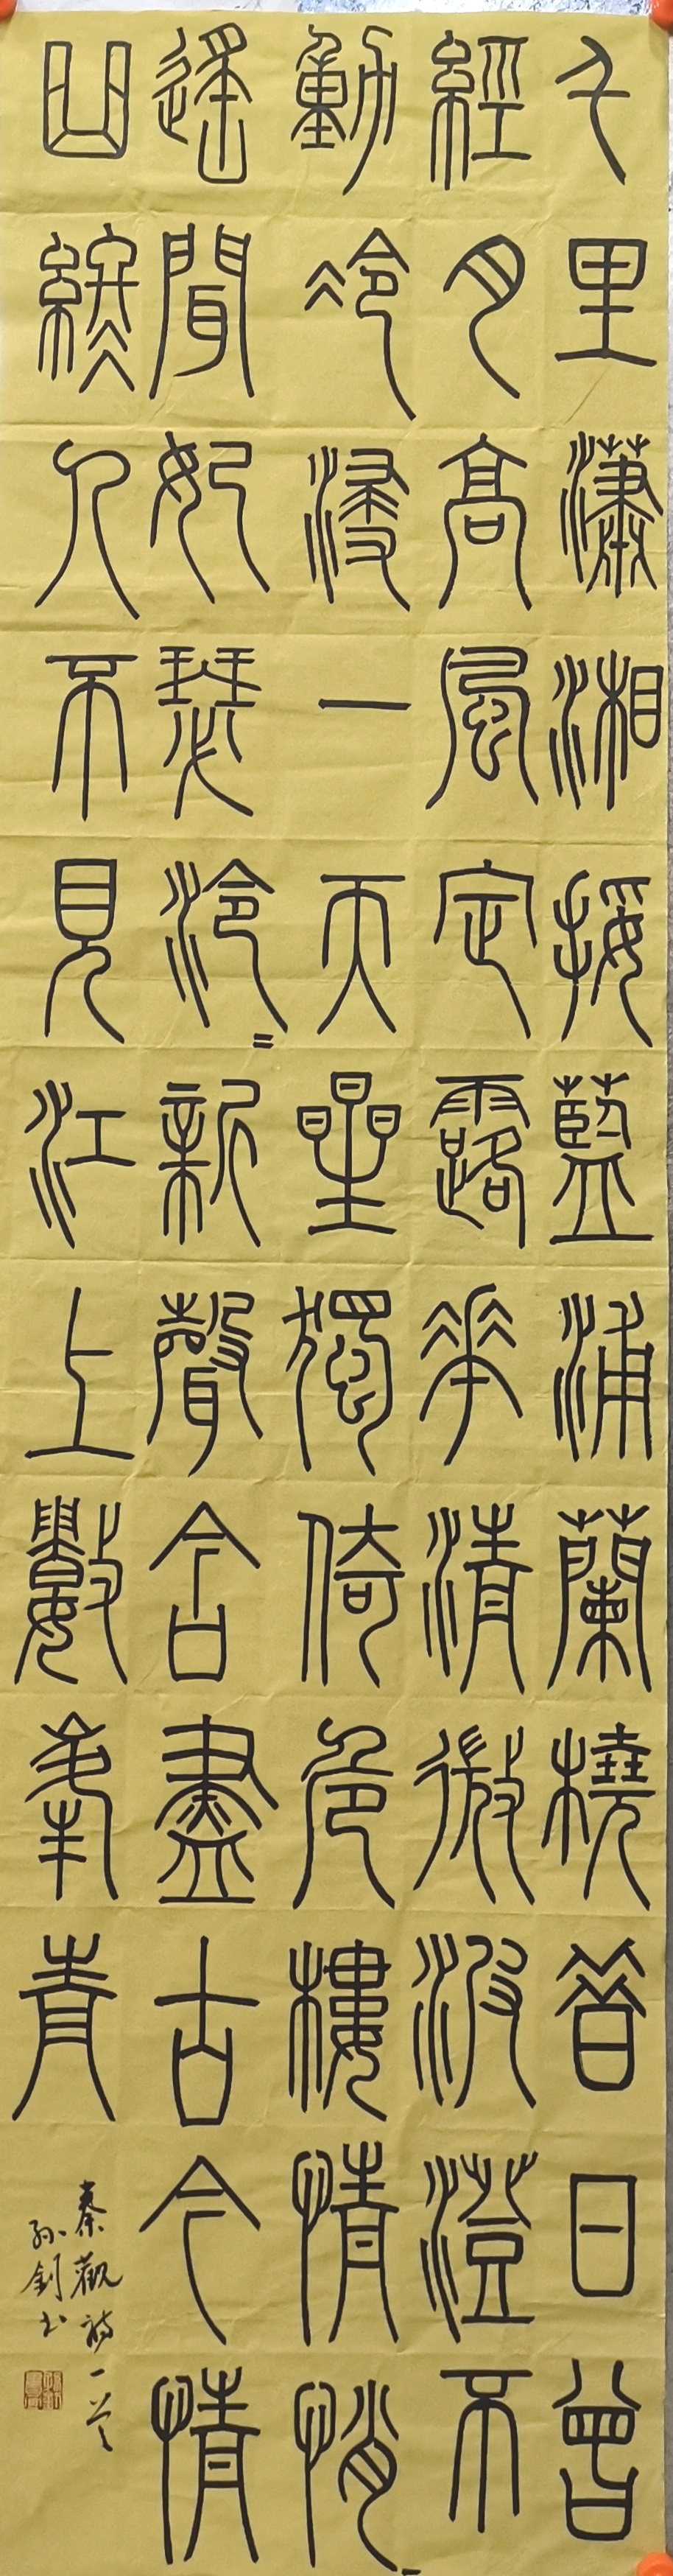 千里瀟湘挼藍浦蘭橈昔日曾
經月高風定露華清微波澄不
動冷浸一天星獨倚危樓情悄〻
遙聞妃瑟泠〻新聲含盡古今情
曲終人不見江上數峯青
秦觀詩一首
孫釗书